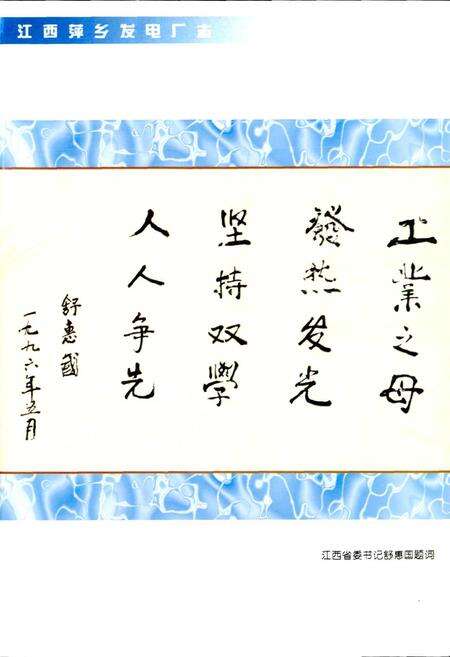 江西萍乡发电厂志
工业之母
發热发光
坚持双學
人人争先
舒惠國
一九九六年五月
江西省委书记舒惠国题词